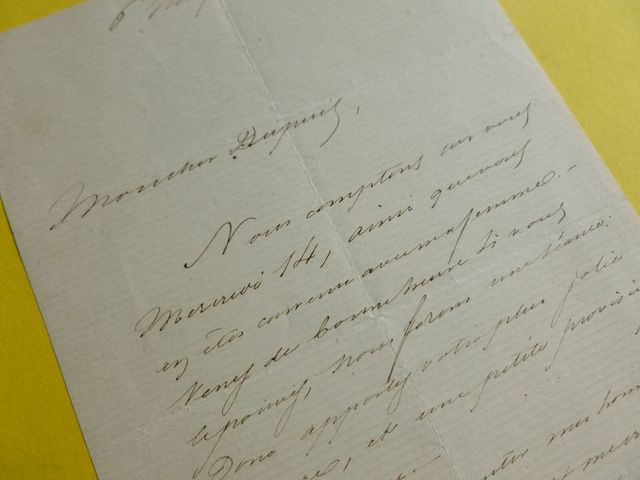 Mon cher Dupuis,
Nous comptons sur vous
Mercredi 14, ainsi que vous
en êtes convenu avec ma femme. —
Venez de bonne heure si vous
le pouvez, nous ferons une séance.
Donc apportez votre plus jolie
et une petite provisi